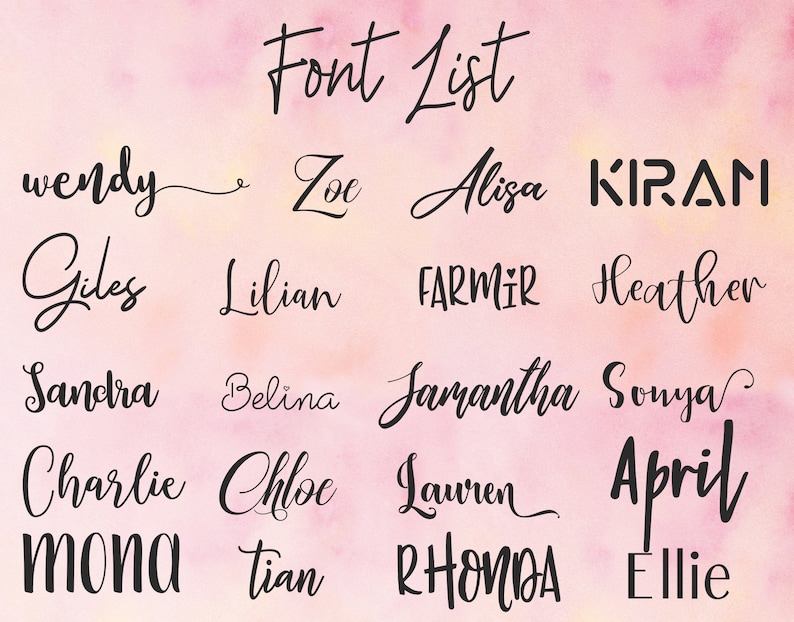 Font List
wendy Zoe Alisa KIRAN
Giles Lilian FARMiR Heather
Sandra Belina Samantha Sonya
Charlie Chloe Lauren April
mona tian RHONDA Ellie